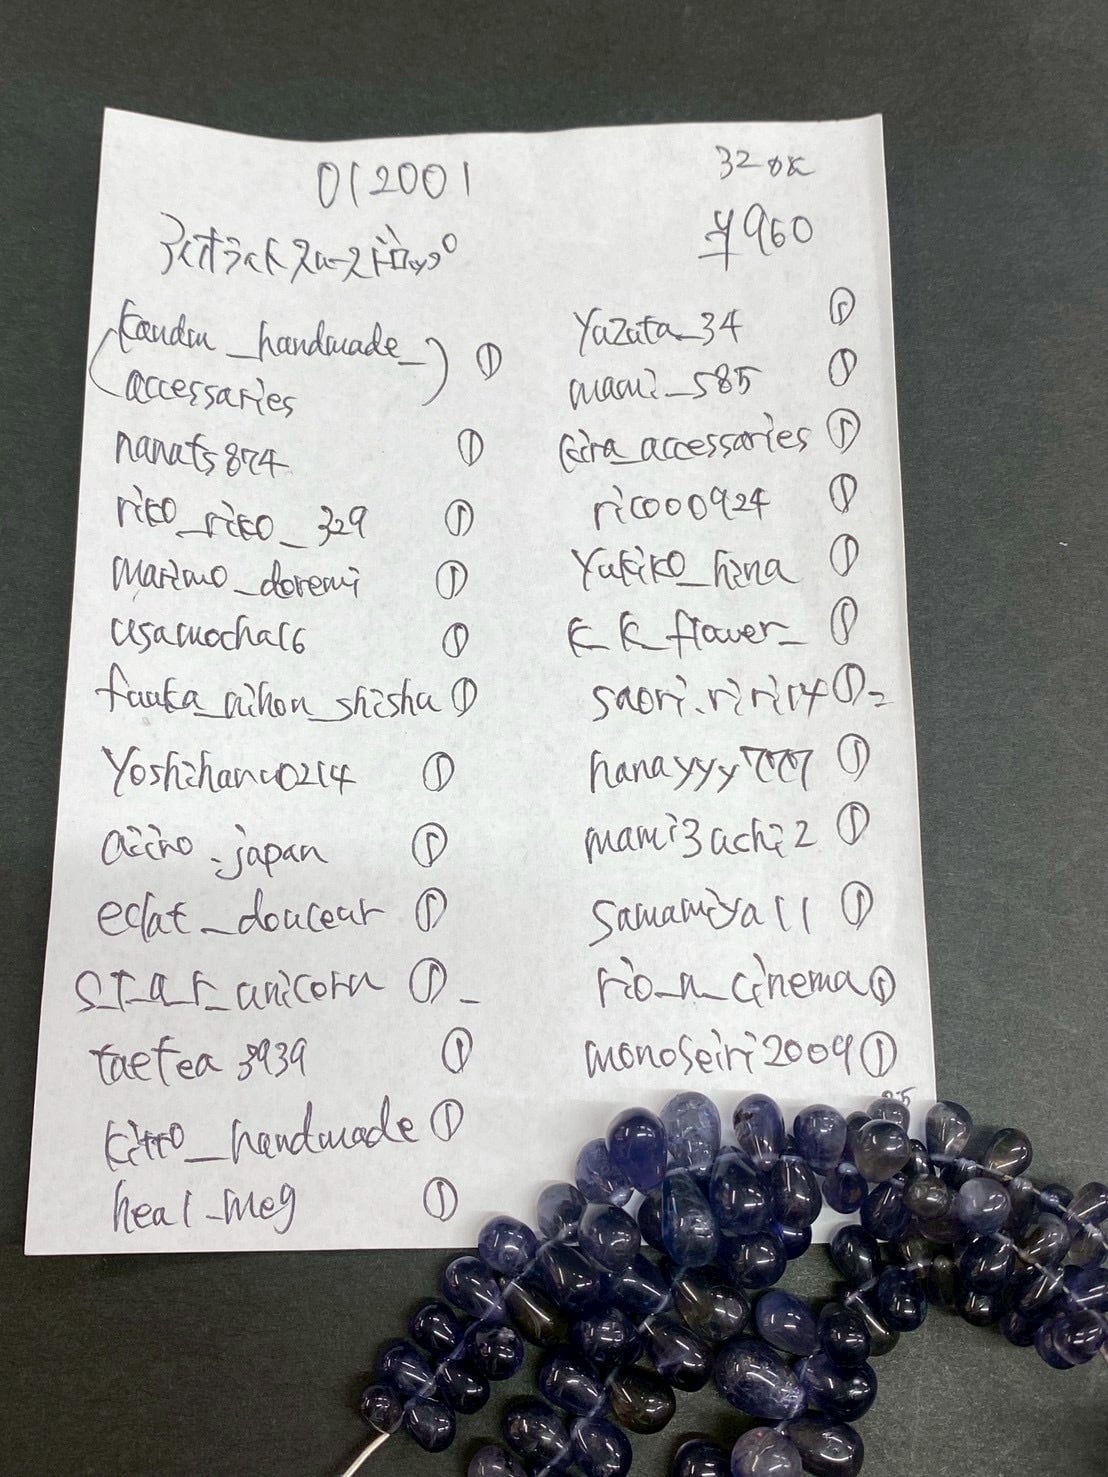 012001
32 OK
アイオライトスムースドロップ
¥960
handmade_
accessaries ①
nanats874 ①
riko_riko_329 ①
marimo_doremi ①
usamocha16 ①
fuuka_nihon_shisha ①
yoshihana0214 ①
aiiro.japan ①
eclat_douceur ①
s_t_a_r_unicorn ①_
taetea3939 ①
kitto_handmade ①
heal_meg ①
yazuta_34 ①
mami_585 ①
kira_accessaries ①
rico00924 ①
yukiko_hina ①
k_k_flower_ ①
saori.riri14 ①=
hanayyy777 ①
mami3achi2 ①
samamiya11 ①
rio_n_cinema ①
monoseiri2009 ①
25